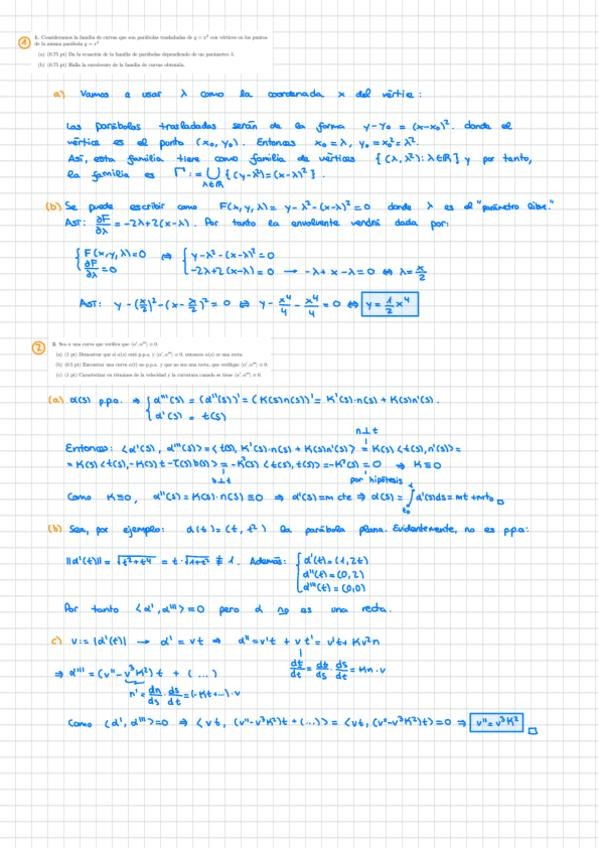 1
1. Consideramos la familia de curvas que son parábolas trasladadas de y = x² con vértices en los puntos
de la misma parábola y = x²
(a) (0.75 pt) Da la ecuación de la familia de parábolas dependiendo de un parámetro λ.
(b) (0.75 pt) Halla la envolvente de la familia de curvas obtenida.
a) Vamos a usar λ como la coordenada x del vértice:
Las parábolas trasladadas serán de la forma y-y₀ = (x-x₀)². donde el
vértice es el punto (x₀, y₀). Entonces x₀ = λ, y₀ = x₀² = λ².
Así, esta familia tiene como familia de vértices {(λ, λ²): λ∈ℝ} y por tanto,
la familia es Γ := ⋃ {(y-λ²) = (x-λ)²}.
λ∈ℝ
(b) Se puede escribir como F(x,y,λ) = y-λ²-(x-λ)² = 0 donde λ es el "parámetro libre."
Así: ∂F/∂λ = -2λ+2(x-λ). Por tanto la envolvente vendrá dada por:
{ F(x,y,λ)=0 ⇔ { y-λ²-(x-λ)² = 0
∂F/∂λ = 0 -2λ+2(x-λ) = 0 → -λ+x-λ = 0 ⇔ λ = x/2
Así: y-(x/2)²-(x-x/2)² = 0 ⇔ y - x⁴/4 - x⁴/4 = 0 ⇔ y = 1/2 x⁴
2
2. Sea α una curva que verifica que ⟨α', α'''⟩ ≡ 0.
(a) (1 pt) Demostrar que si α(s) está p.p.a. y ⟨α', α'''⟩ ≡ 0, entonces α(s) es una recta.
(b) (0.5 pt) Encontrar una curva α(t) no p.p.a. y que no sea una recta, que verifique ⟨α', α'''⟩ ≡ 0.
(c) (1 pt) Caracterizar en términos de la velocidad y la curvatura cuando se tiene ⟨α', α'''⟩ ≡ 0.
(a) α(s) p.p.a. ⇒ { α'''(s) = (α''(s))' = (K(s)n(s))' = K'(s)·n(s) + K(s)n'(s).
α'(s) = t(s)
n⊥t
Entonces: ⟨α'(s), α'''(s)⟩ = ⟨t(s), K'(s)·n(s) + K(s)n'(s)⟩ = K(s)⟨t(s), n'(s)⟩ =
= K(s)⟨t(s), -K(s)t - τ(s)b(s)⟩ = -K²(s)⟨t(s), t(s)⟩ = -K²(s) = 0 ⇒ K≡0
b⊥t por hipótesis
Como K≡0, α''(s) = K(s)·n(s) ≡ 0 ⇒ α'(s) = m cte ⇒ α(s) = ∫ α'(s)ds = mt + mt₀ □
t₀
(b) Sea, por ejemplo: α(t) = (t, t²) la parábola plana. Evidentemente, no es p.p.a:
||α'(t)|| = √t²+t⁴ = t·√1+t² ≢ 1. Además: { α'(t) = (1,2t)
α''(t) = (0,2)
α'''(t) = (0,0)
Por tanto ⟨α', α'''⟩ = 0 pero α no es una recta.
c) v := |α'(t)| → α' = vt ⇒ α'' = v't + vt' = v't + Kv²n
dt/dt = dt/ds · ds/dt = Kn·v
⇒ α''' = (v''-v³K²)t + (...)
n' = dn/ds · ds/dt = (-Kt+...)·v
Como ⟨α', α'''⟩=0 ⇒ ⟨vt, (v''-v³K²)t + (...)⟩ = ⟨vt, (v''-v³K²)t⟩ = 0 ⇒ v'' = v³K² □